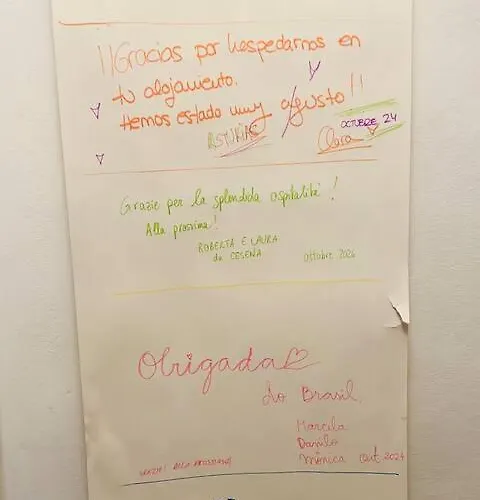 ¡¡Gracias por hospedarnos en
tu alojamiento.
Hemos estado muy agusto!!
ASTURIAS
OCTUBRE 24
Clara
Grazie per la splendida ospitalità!
Alla prossima!
ROBERTA E LAURA
da CESENA
ottobre 2024
Obrigada
do Brasil
Marcela
Danilo
Mônica Out 2024
GRAZIE! ALLA PROSSIMA!